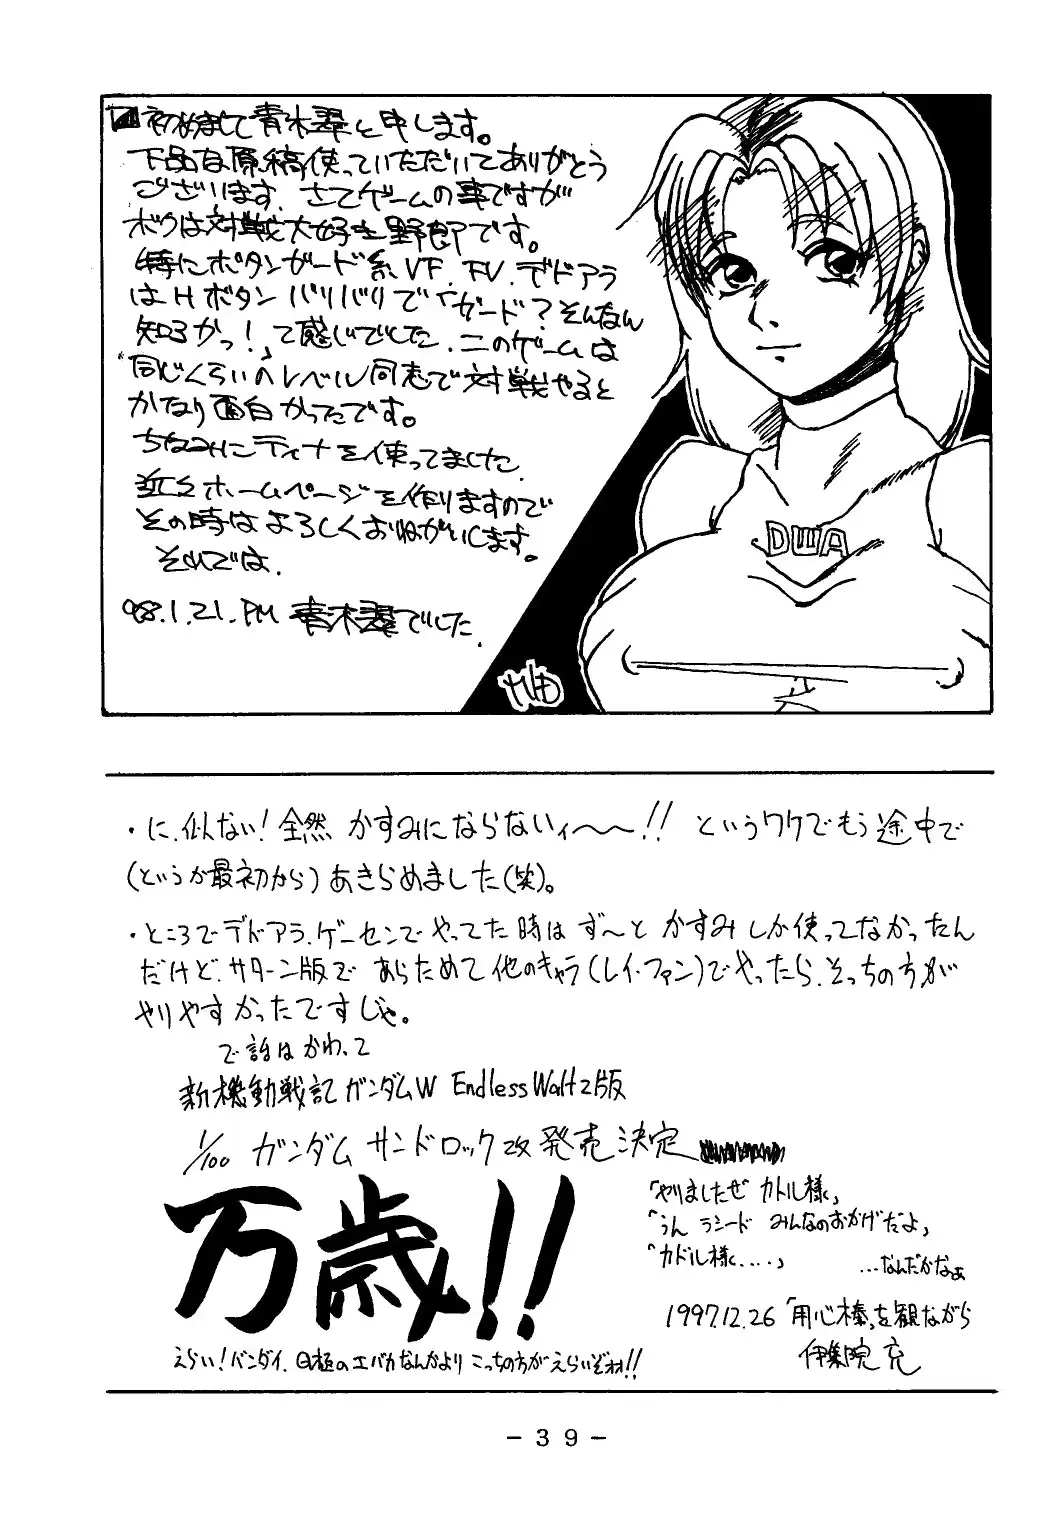 初めまして青木翠と申します。
下品な原稿使っていただいてありがとう
ございます。さてゲームの事ですが
ボクは対戦大好き野郎です。
特にボタンガード系VF.FV.デドアラ
はHボタンバリバリで「ガード?そんなん
知るかっ!」って感じでした。このゲームは
同じくらいのレベル同志で対戦やると
かなり面白かったです。
ちなみにティナを使ってました.
近々ホームページを作りますので
その時はよろしくおねがいします。
それでは.
'98.1.21.PM 青木翠でした.
DWA
・に、似ない!全然かすみにならないィ〜〜!! というワケでもう途中で
(というか最初から)あきらめました(笑)。
・ところでデドアラ、ゲーセンでやってた時はず〜とかすみしか使ってなかったん
だけど、サターン版であらためて他のキャラ(レイ・ファン)でやったら、そっちの方が
やりやすかったですじゃ。
で話はかわって
新機動戦記ガンダムW Endless Waltz版
1/100 ガンダムサンドロック改発売決定
万歳!!
「やりましたぜ カトル様」
「うん ラシード みんなのおかげだよ」
「カトル様....」
...なんだかなぁ
えらい!バンダイ、日極のエバカなんかより こっちの方がえらいぞォォ!!
1997.12.26 「用心棒」を観ながら
伊集院 充
- 39 -